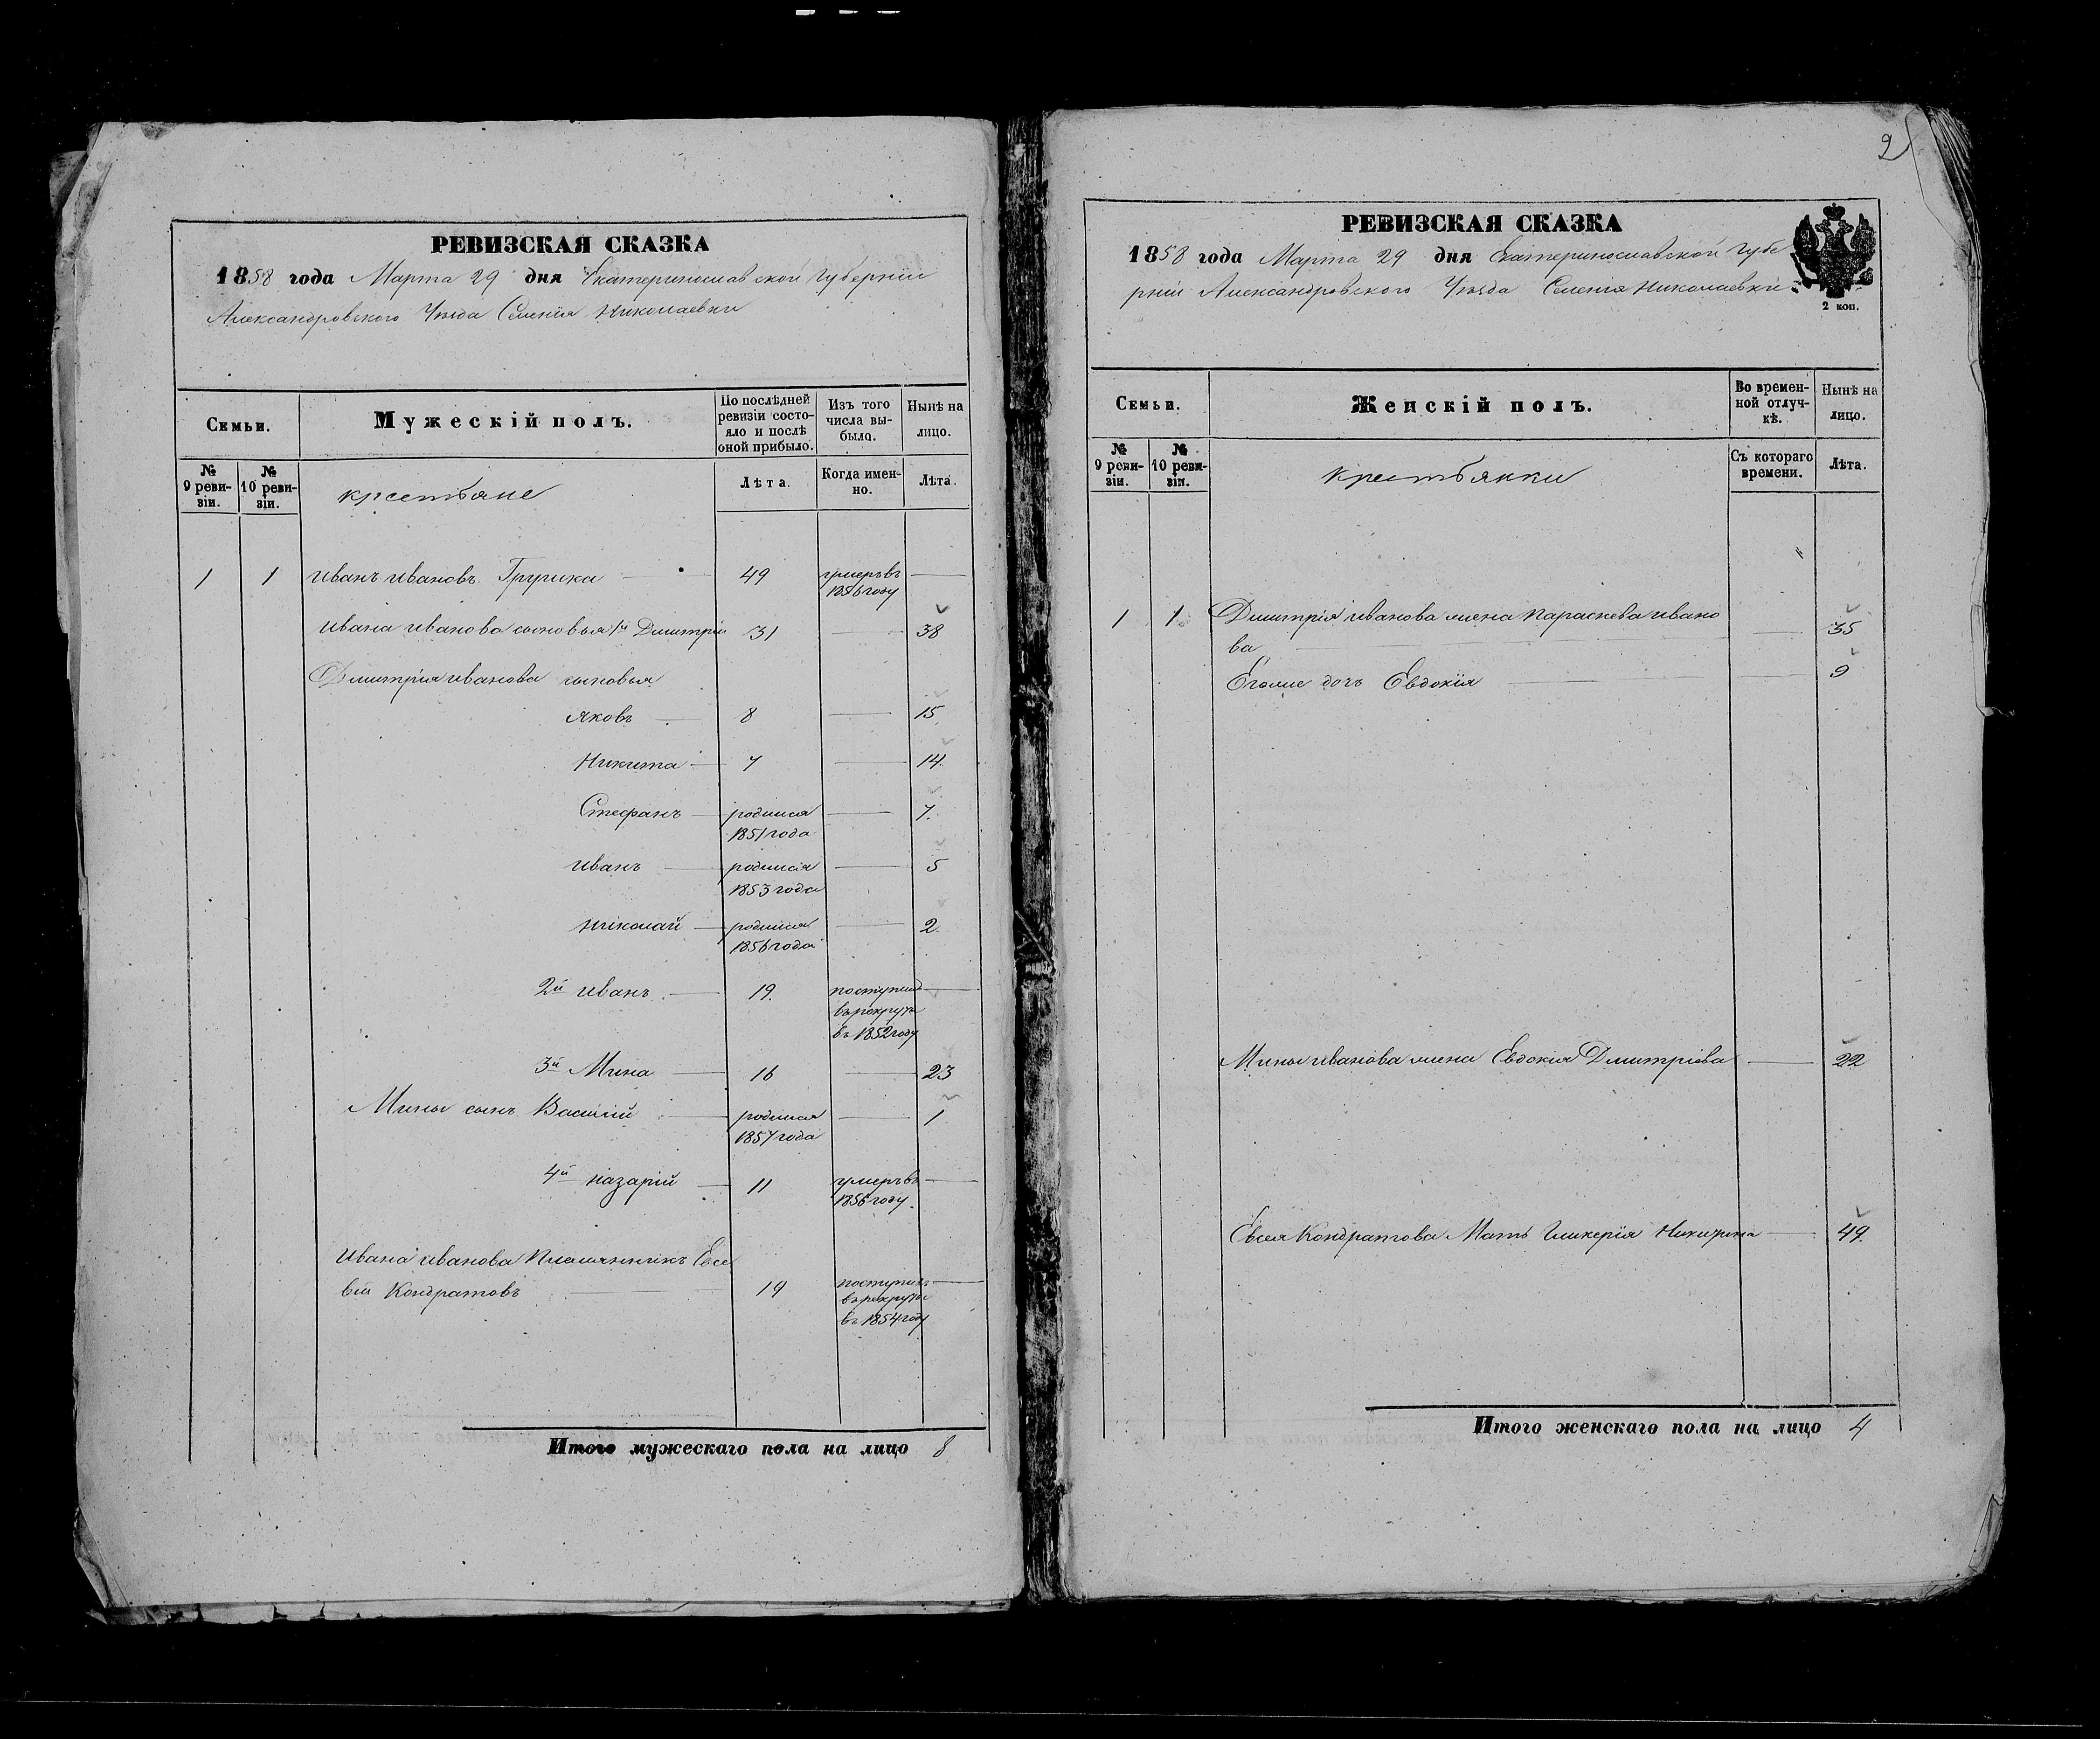 РЕВИЗСКАЯ СКАЗКА
1858 года Марта 29 дня Екатеринославской Губерніи
Александровского Уѣзда Селенія Николаевки
Семьи.
Мужескій полъ.
По послѣдней ревизіи состояло и послѣ оной прибыло.
Изъ того числа выбыло.
Нынѣ на лицо.
№ 9 ревизіи.
№ 10 ревизіи.
крестьяне
Лѣта.
Когда именно.
Лѣта.
1 1 Иванъ Ивановъ 49 умеръ въ
1856 году
Ивана Иванова сыновья 1й Дмитрій 31 38
Дмитрія Иванова сыновья
Яковъ 8 15
Никита 7 14
Стефанъ родился 7
1851 года
Иванъ родился 5
1853 года
Николай родился 2
1856 года
2й Иванъ 19 поступилъ
въ рекруты
въ 1852 году
3й Мина 16 23
Мины сынъ Василій родился 1
1857 года
4й Назарій 11 умеръ въ
1856 году
Ивана Иванова Племянникъ Евсе
вій Кондратовъ 19 поступилъ
въ рекруты
въ 1854 году
Итого мужескаго пола на лицо 8
2
РЕВИЗСКАЯ СКАЗКА
1858 года Марта 29 дня Екатеринославской Губе
рніи Александровского Уѣзда Селенія Николаевки
2 коп.
Семьи.
Женскій полъ.
Во временной отлучкѣ.
Нынѣ на лицо.
№ 9 ревизіи.
№ 10 ревизіи.
крестьянки
Съ котораго времени.
Лѣта.
1 1 Дмитрія Иванова жена Параскева Ивано
ва 35
Егоже дочь Евдокія 9
Мины Иванова жена Евдокія Дмитріева 22
Евсея Кондратова Мать Гликерія Никитина 49
Итого женскаго пола на лицо 4